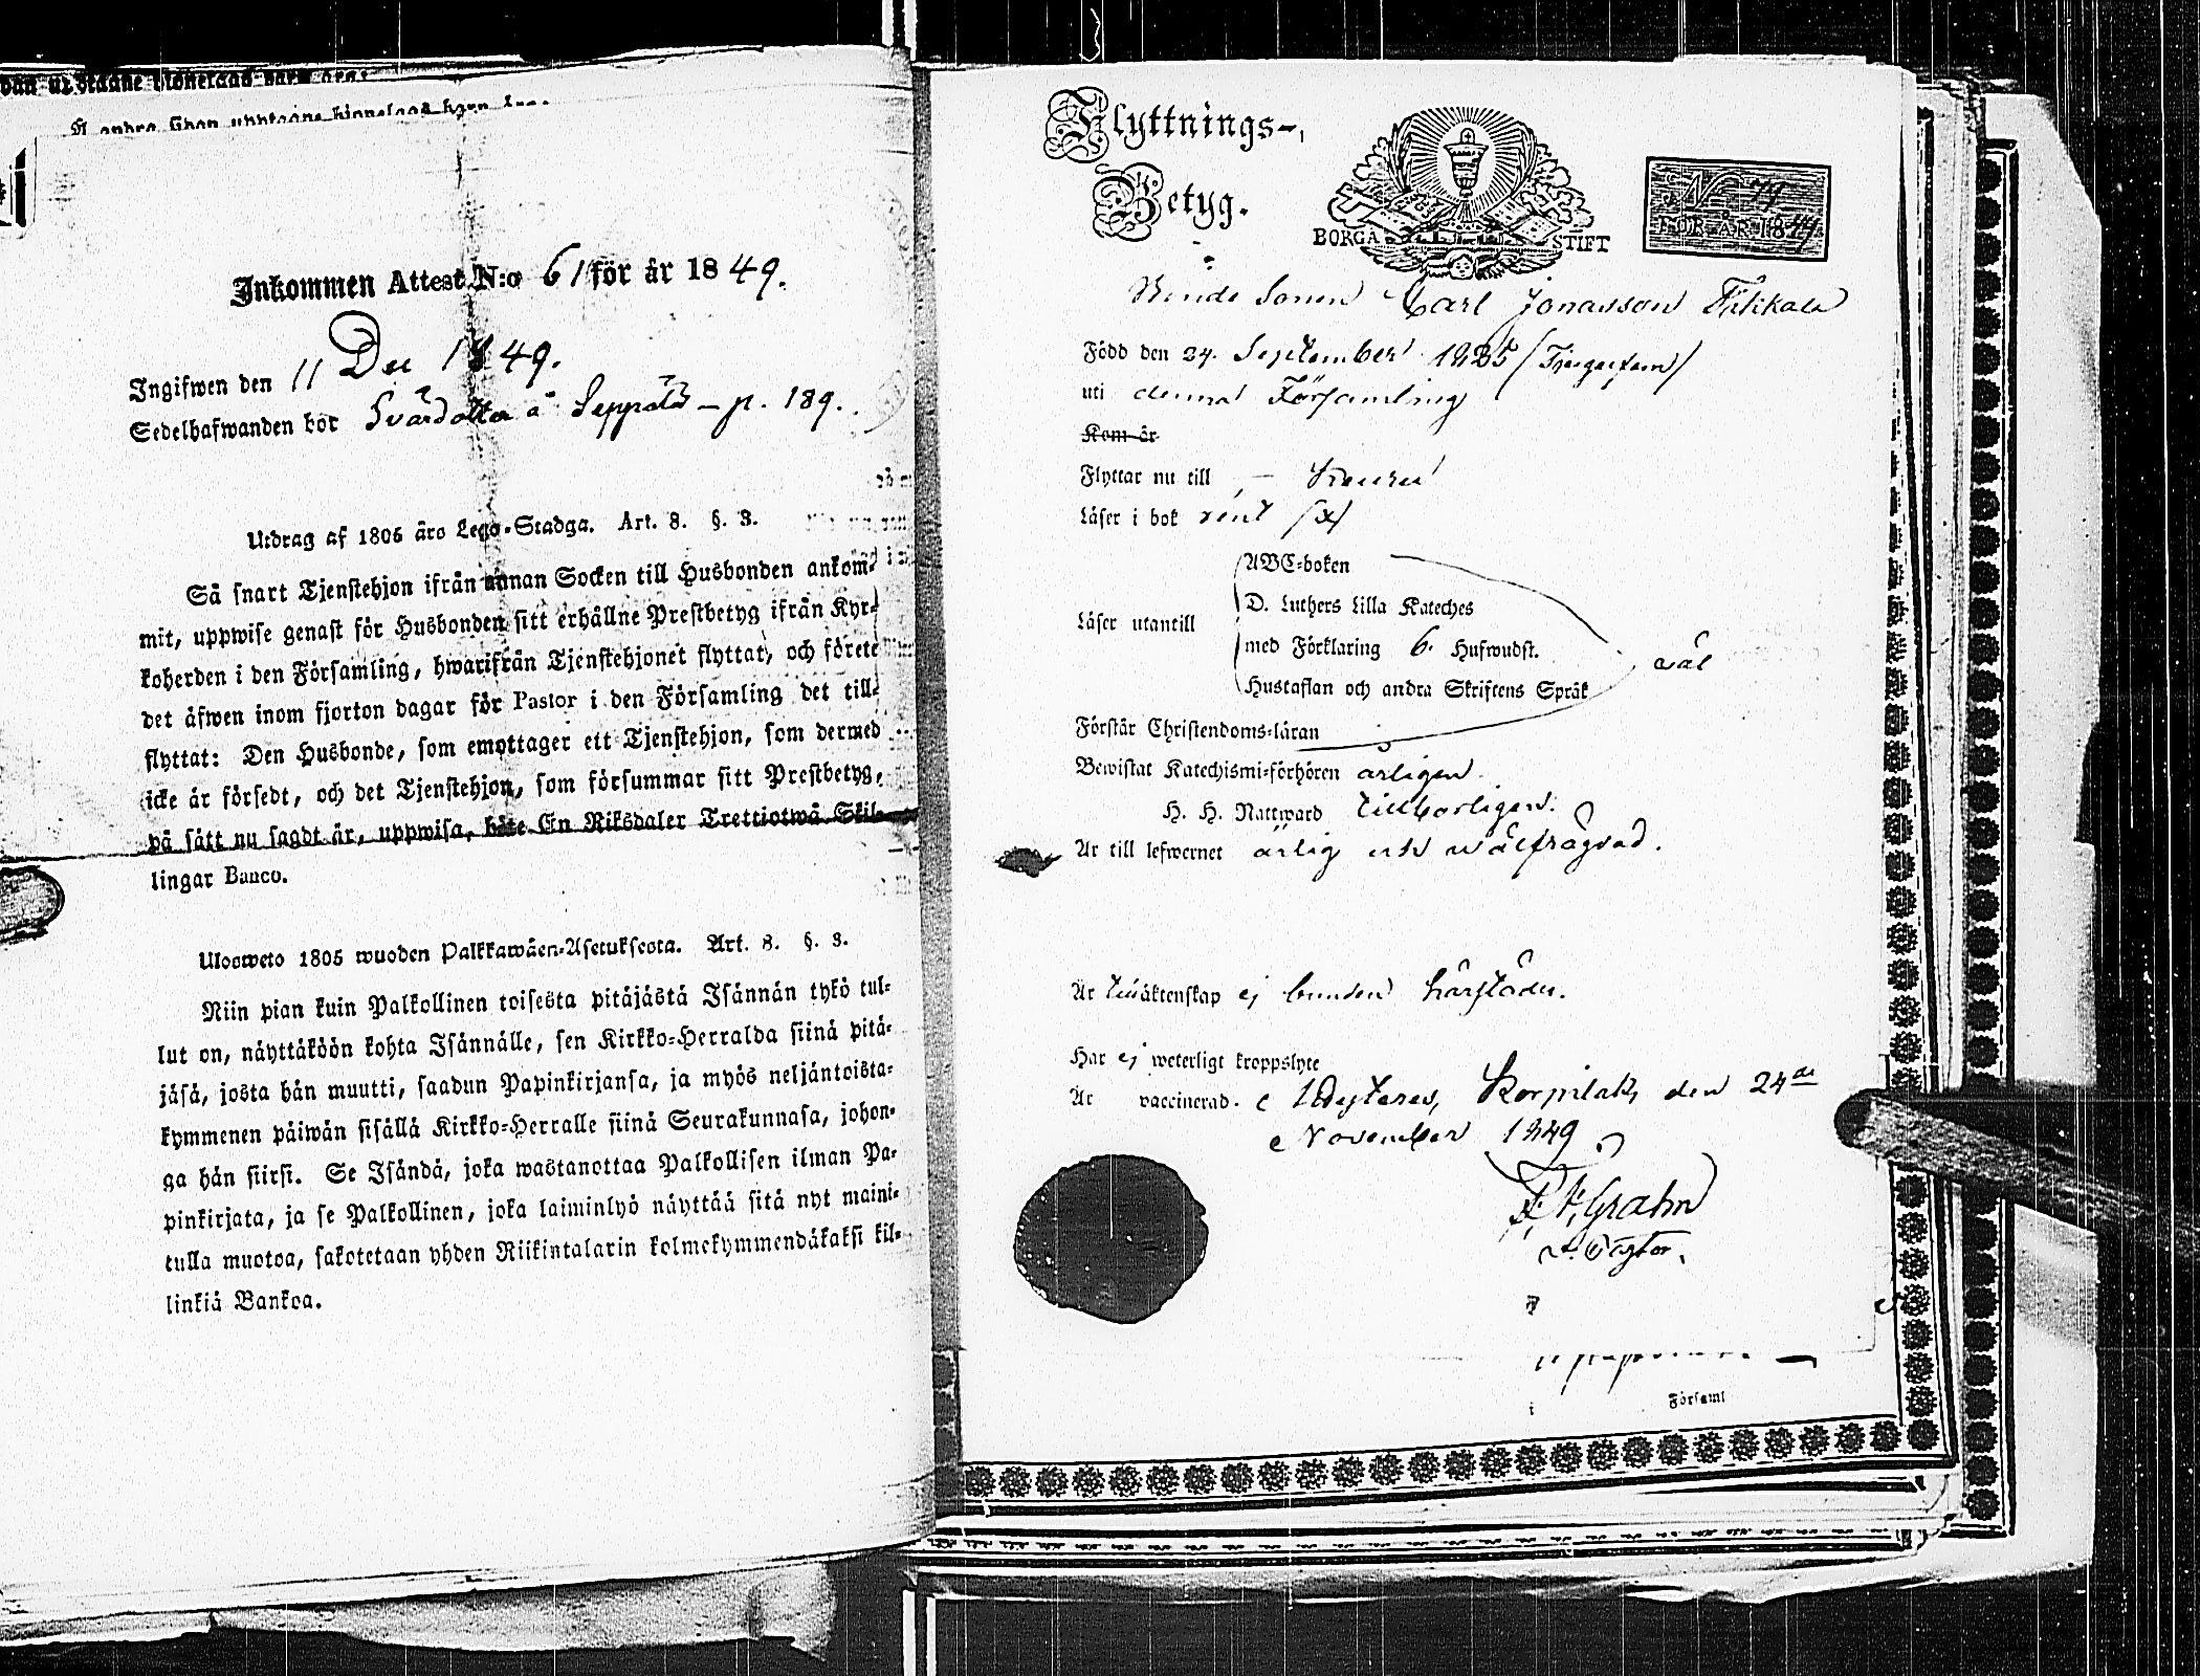 Inkommen Attest N:o 61 för år 1849.
Ingifwen den 11 Dec 1849.
Sedelhafwanden bör Svärdotta å Seppälä – p. 189.
Utdrag af 1805 års Lego-Stadga. Art. 8. §. 3.
Så snart Tjenstehjon ifrån annan Socken till Husbonden ankom-
mit, uppwise genast för Husbonden sitt erhållne Prestbetyg ifrån Kyr-
koherden i den Församling, hwarifrån Tjenstehjonet flyttat, och förete
det äfwen inom fjorton dagar för Pastor i den Församling det till-
flyttat: Den Husbonde, som emottager ett Tjenstehjon, som dermed
icke är försedt, och det Tjenstehjon, som försummar sitt Prestbetyg,
på sätt nu sagdt är, uppwisa, böte En Riksdaler Trettiotwå Skil-
lingar Banco.
Ulosweto 1805 wuoden Palkkawäen-Asetuksesta. Art. 8. §. 3.
Niin pian kuin Palkollinen toisesta pitäjästä Isännän tykö tul-
lut on, näyttäköön kohta Isännälle, sen Kirkko-Herralda siinä pitä-
jäsä, josta hän muutti, saadun Papinkirjansa, ja myös neljäntoista-
kymmenen päiwän sisällä Kirkko-Herralle siinä Seurakunnasa, johon-
ga hän siirsi. Se Isändä, joka wastanottaa Palkollisen ilman Pa-
pinkirjata, ja se Palkollinen, joka laiminlyö näyttää sitä nyt maini-
tulla muotoa, sakotetaan yhden Riikintalarin kolmekymmendäkaksi kil-
linkiä Bankoa.
Flyttnings-
Betyg.
BORGÅ STIFT
N 79
FÖR ÅR 1849
Bonde Sonen Carl Jonasson Tikkala
Född den 24. September 1825
uti denna Församling
Kom år
Flyttar nu till – Keuru
Läser i bok rent
Läser utantill
ABC-boken
D. Luthers Lilla Kateches
med Förklaring 6. Hufwudst.
Hustaflan och andra Skriftens Språk
väl
Förstår Christendoms-läran
Bewistat Katechismi-förhören årligen.
H. H. Nattward tillbörligen.
Är till lefwernet ärlig och wälfrägdad.
Är till äktenskap ej bunden härstädes.
Har ej weterligt kroppslyte
Är vaccinerad. Korpilaks, den 24de
November 1849
Grahn
Pastor.
Församl